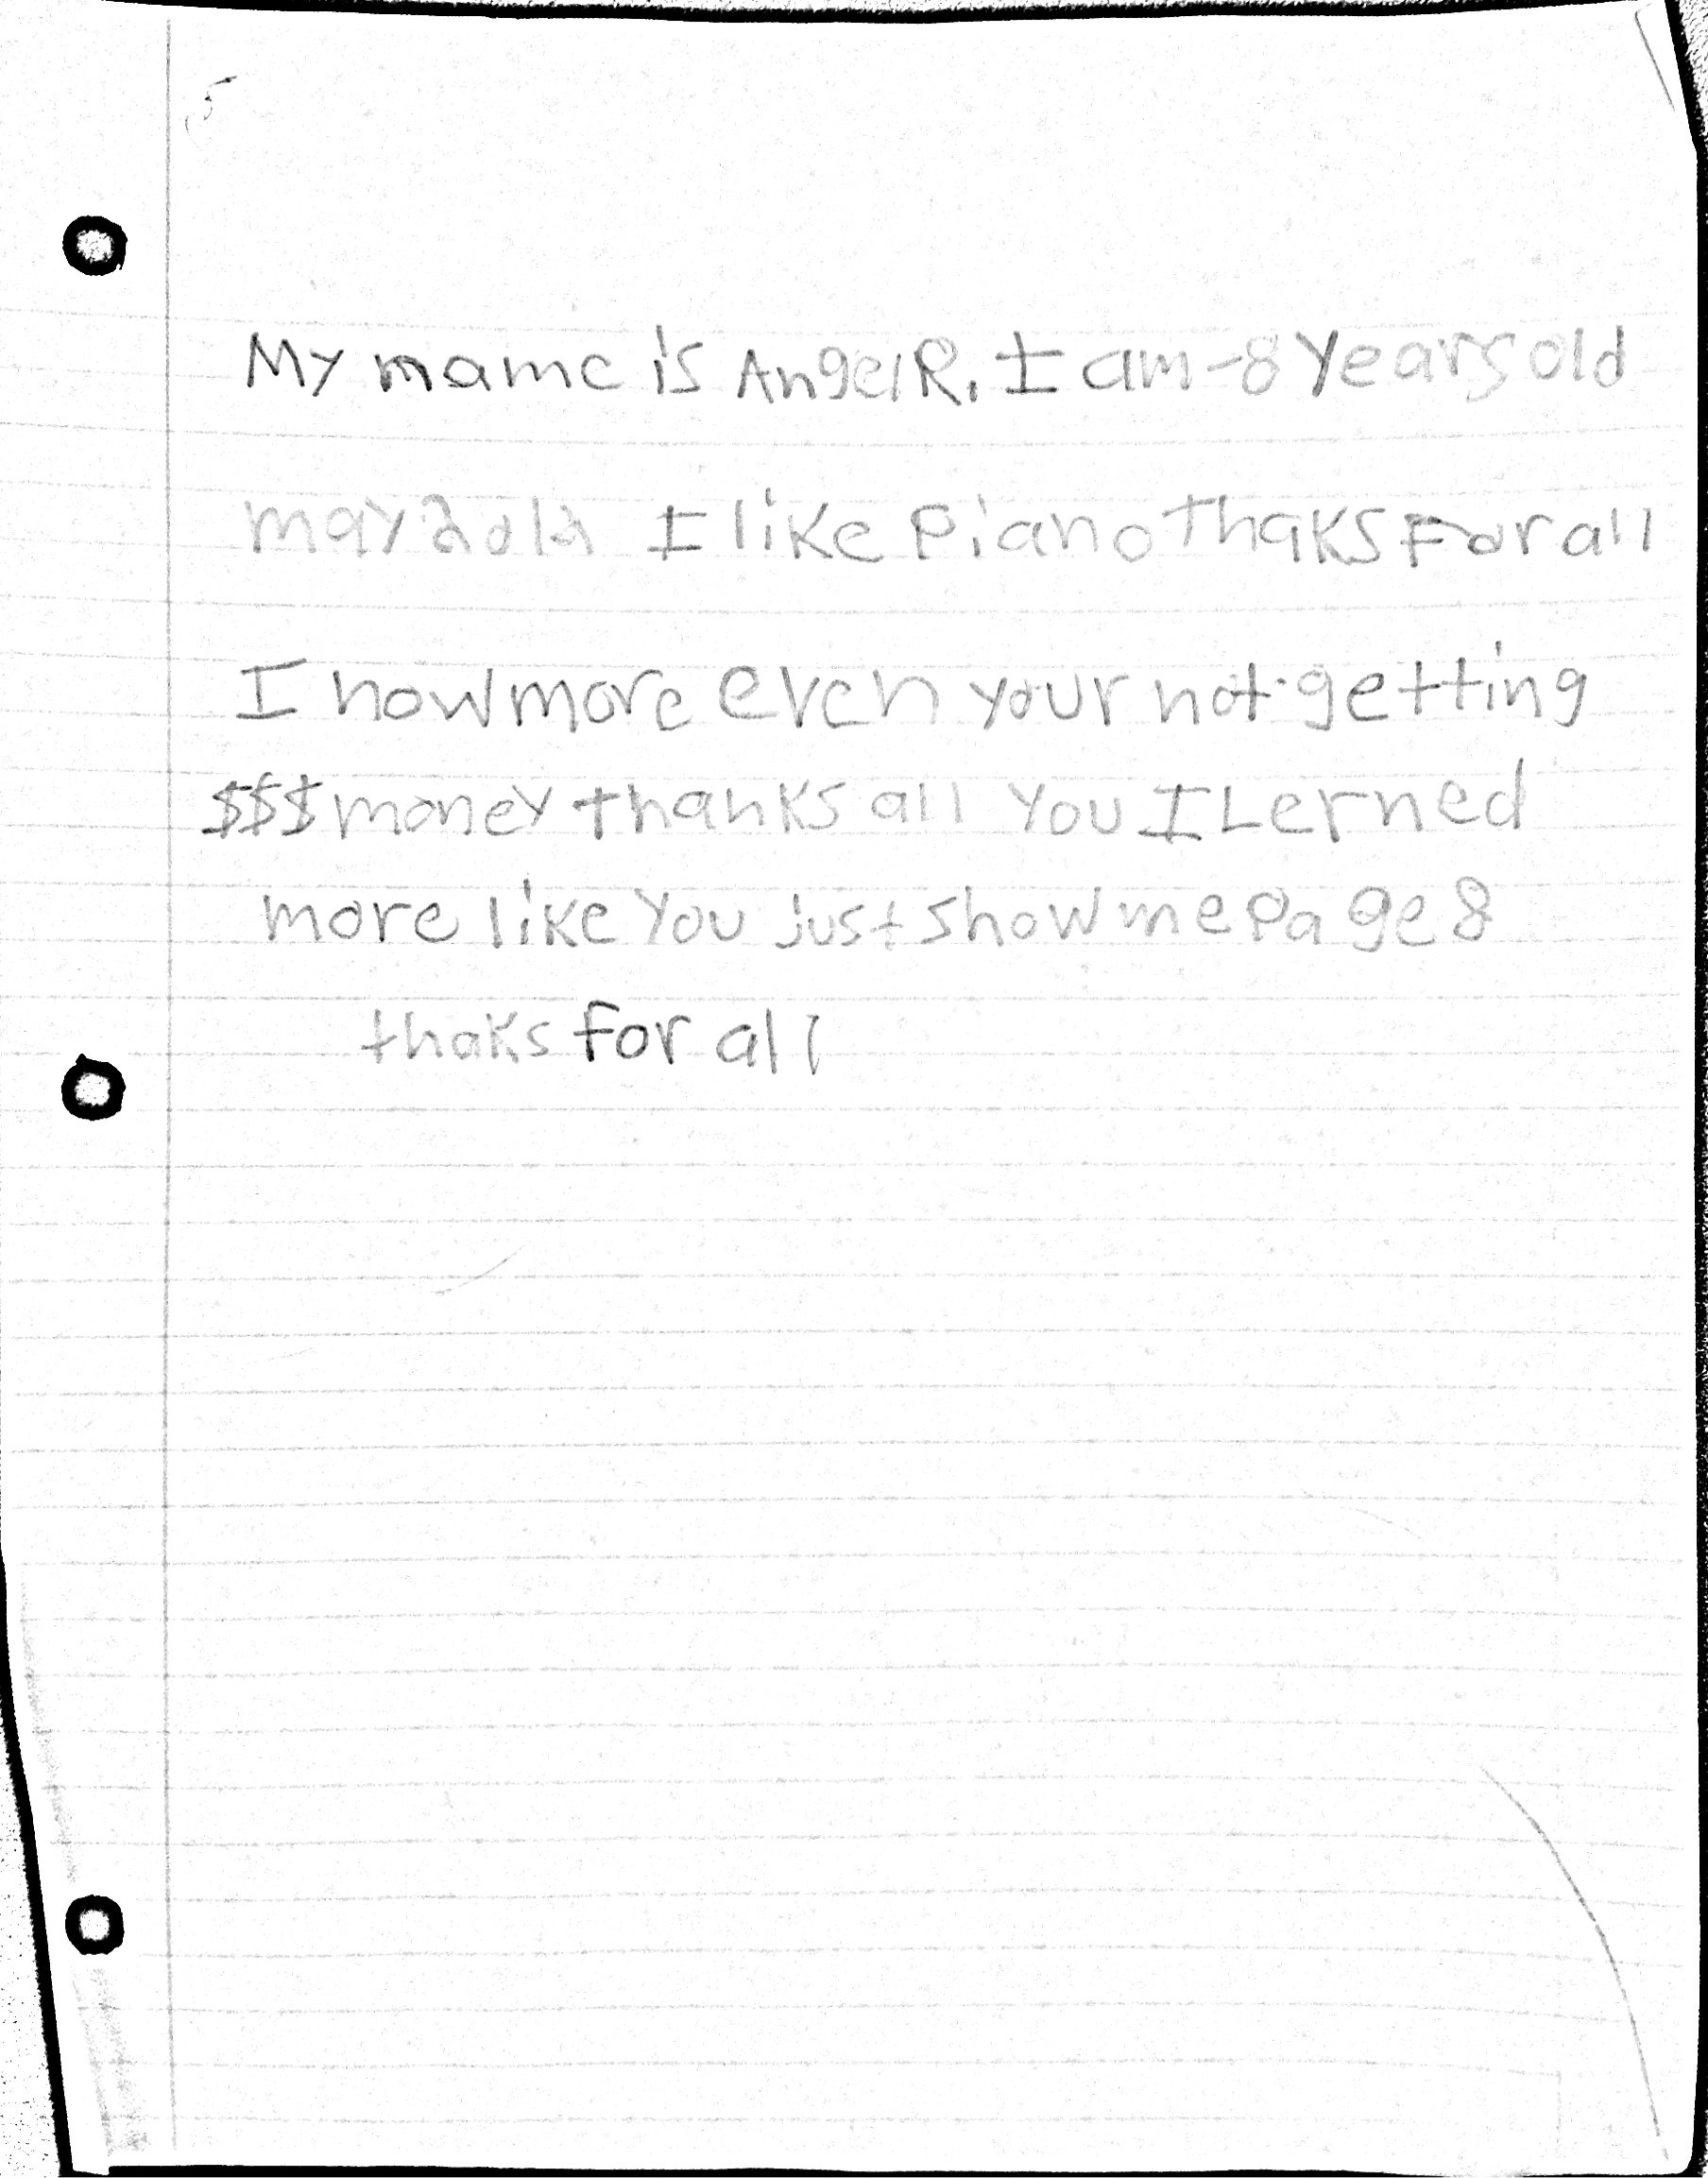 My mame is Angel R. I am -8 years old
may I like Piano Thaks For all
I now more even your not getting
$$$ money thanks all You I Lerned
more like You just show me Page 8
thaks for all